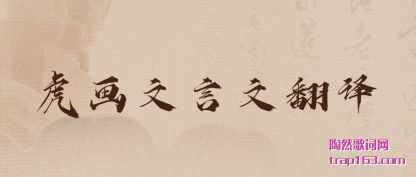 虎画文言文翻译
陶然歌词网
trap163.com